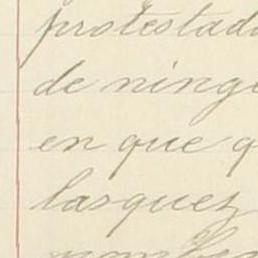 protestad
de ning
en que q
lasquez
nombe